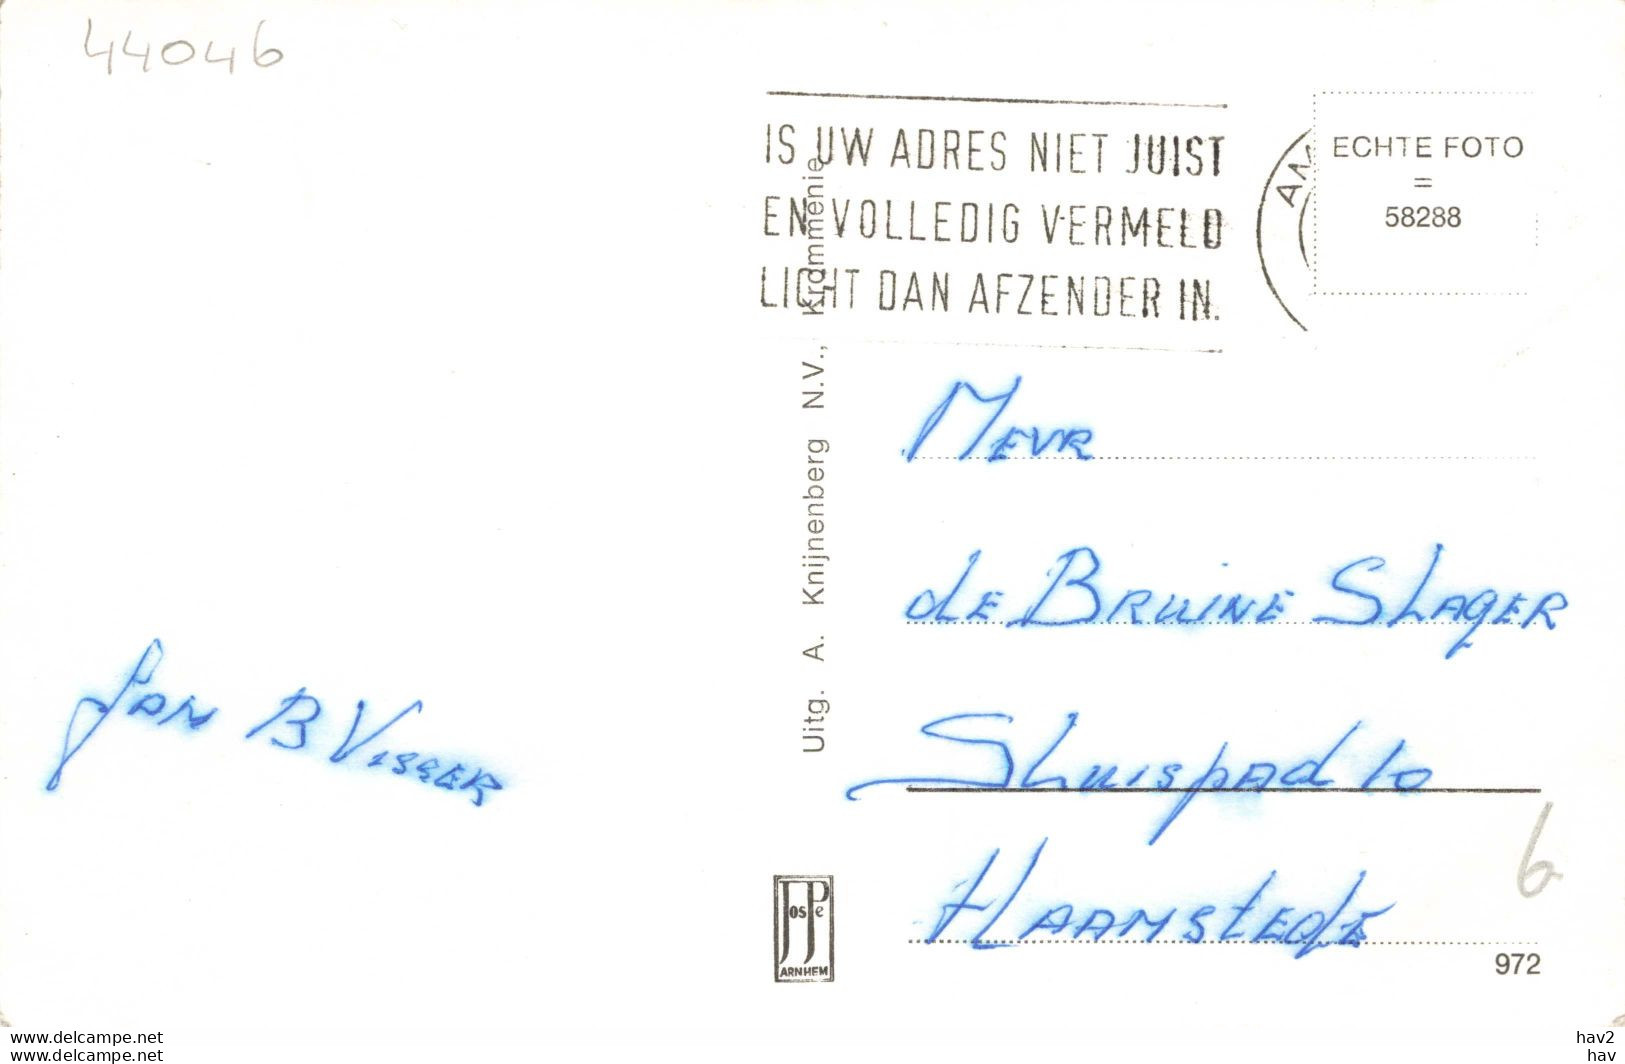 44046
IS UW ADRES NIET JUIST
EN VOLLEDIG VERMELD
LICHT DAN AFZENDER IN.
ECHTE FOTO
=
58288
Uitg. A. Knijnenberg N.V., Krommenie
Mevr
de Bruine Slager
Sluispad 10
Haamstede
Jan B Visser
6
JosPe
ARNHEM
972
www.delcampe.net
www.delcampe.net
hav2
hav